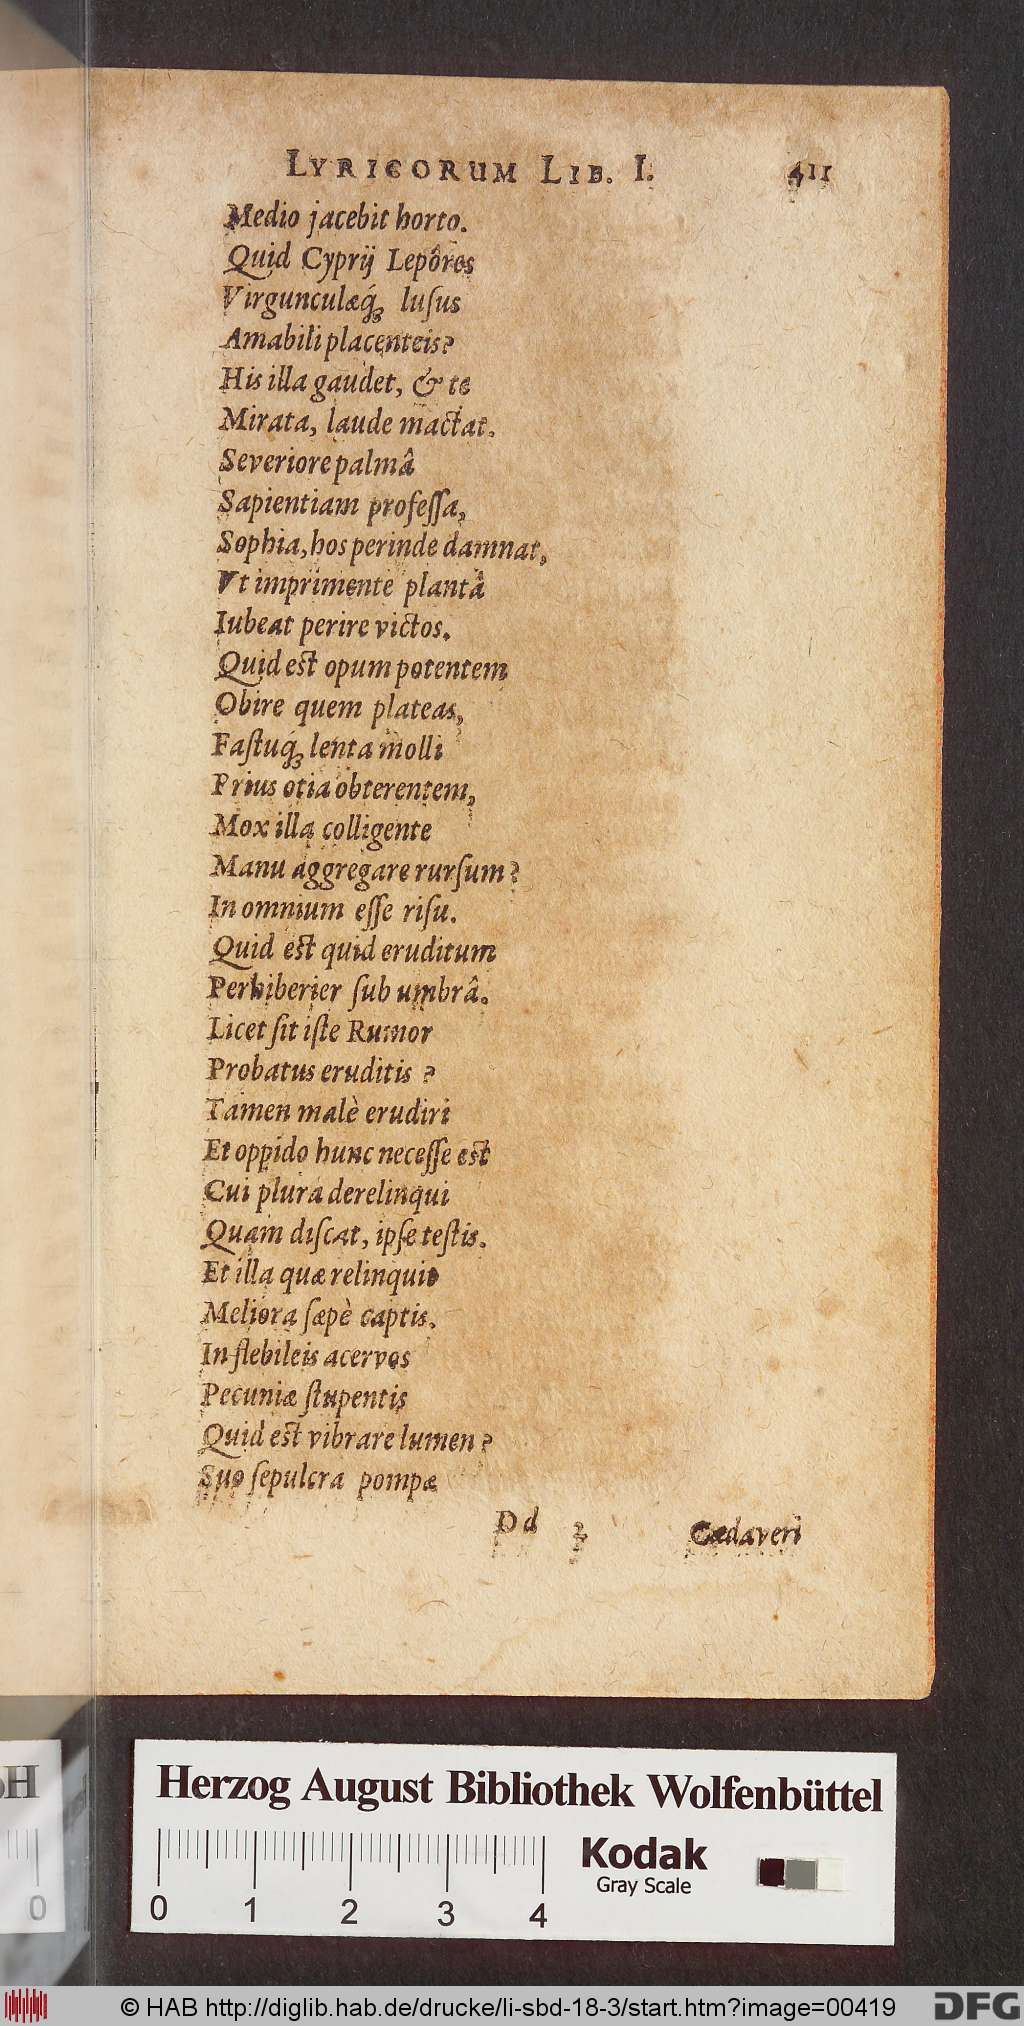 LYRICORUM LIB. I. 411
Medio jacebit horto.
Quid Cyprij Lepôres
Virgunculæq́; lusus
Amabili placenteis?
His illa gaudet, & te
Mirata, laude mactat.
Severiore palmâ
Sapientiam professa,
Sophia, hos perinde damnat,
Vt imprimente plantâ
Iubeat perire victos.
Quid est opum potentem
Obire quem plateas,
Fastuq́; lenta molli
Prius otia obterentem,
Mox illa colligente
Manu aggregare rursum?
In omnium esse risu.
Quid est quid eruditum
Perhiberier sub umbrâ.
Licet sit iste Rumor
Probatus eruditis?
Tamen malè erudiri
Et oppido hunc necesse est
Cui plura derelinqui
Quam discat, ipse testis.
Et illa quæ relinquit
Meliora sæpè captis.
In flebileis acervos
Pecuniæ stupentis
Quid est vibrare lumen?
Suo sepulcra pompæ
Dd 2 Cadaveri
Herzog August Bibliothek Wolfenbüttel
Kodak
Gray Scale
0 1 2 3 4
0
© HAB http://diglib.hab.de/drucke/li-sbd-18-3/start.htm?image=00419
DFG